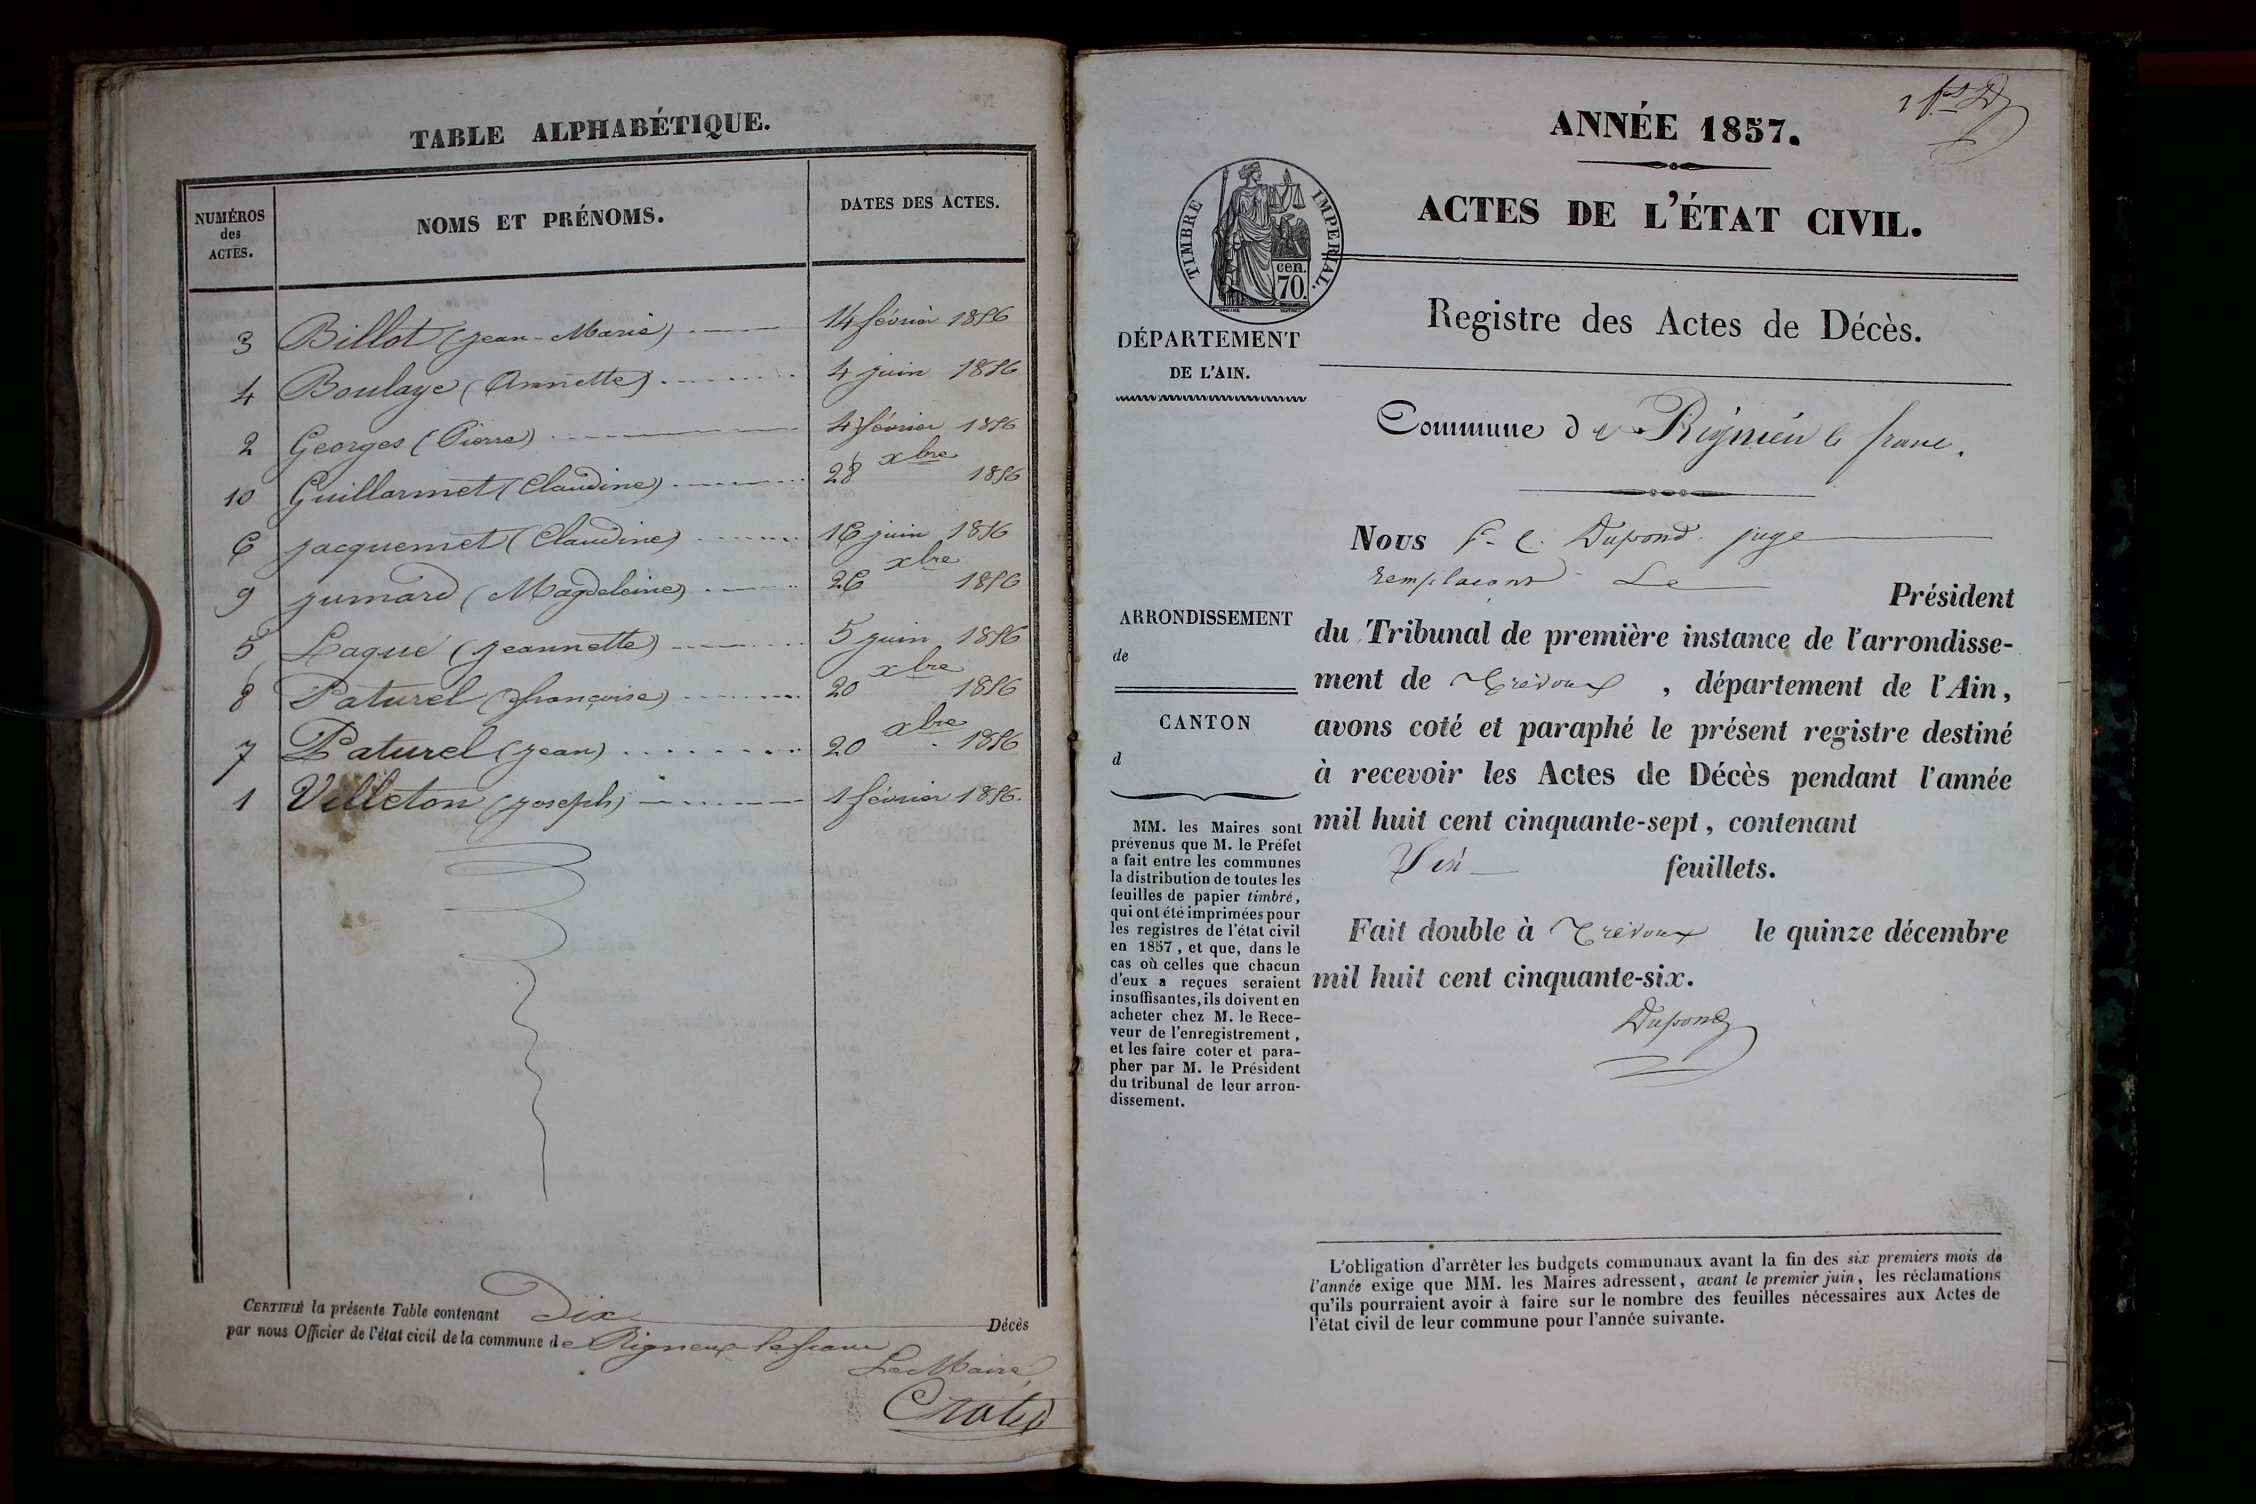 TABLE ALPHABÉTIQUE.
NUMÉROS
des
ACTES.
NOMS ET PRÉNOMS.
DATES DES ACTES.
3 Billot (jean-Marie) 14 février 1856
4 Boulaye (Annette) 4 juin 1856
2 Georges (Pierre) 4 février 1856
10 Guillermet (Claudine) 28 xbre 1856
6 jacquemet (Claudine) 16 juin 1856
9 jumard (Magdeleine) 26 xbre 1856
5 Laqué (jeannette) 5 juin 1856
8 Paturel (françoise) 20 xbre 1856
7 Paturel (jean) 20 xbre 1856
1 Villeton (joseph) 1 février 1856.
CERTIFIÉ la présente Table contenant Dix Décès
par nous Officier de l'état civil de la commune de Rigneux le franc
Le Maire,
ANNÉE 1857.
ACTES DE L'ÉTAT CIVIL.
TIMBRE IMPERIAL.
cen.
70.
Registre des Actes de Décès.
DÉPARTEMENT
DE L'AIN.
Commune de Rignieu le franc.
Nous Dupond juge
remplaçant Le Président
du Tribunal de première instance de l'arrondisse-
ment de Trévoux, département de l'Ain,
avons coté et paraphé le présent registre destiné
à recevoir les Actes de Décès pendant l'année
mil huit cent cinquante-sept, contenant
feuillets.
Fait double à Trévoux le quinze décembre
mil huit cent cinquante-six.
Dupond
ARRONDISSEMENT
de
CANTON
d
MM. les Maires sont
prévenus que M. le Préfet
a fait entre les communes
la distribution de toutes les
feuilles de papier timbré,
qui ont été imprimées pour
les registres de l'état civil
en 1857, et que, dans le
cas où celles que chacun
d'eux a reçues seraient
insuffisantes, ils doivent en
acheter chez M. le Rece-
veur de l'enregistrement,
et les faire coter et para-
pher par M. le Président
du tribunal de leur arron-
dissement.
L'obligation d'arrêter les budgets communaux avant la fin des six premiers mois de
l'année exige que MM. les Maires adressent, avant le premier juin, les réclamations
qu'ils pourraient avoir à faire sur le nombre des feuilles nécessaires aux Actes de
l'état civil de leur commune pour l'année suivante.